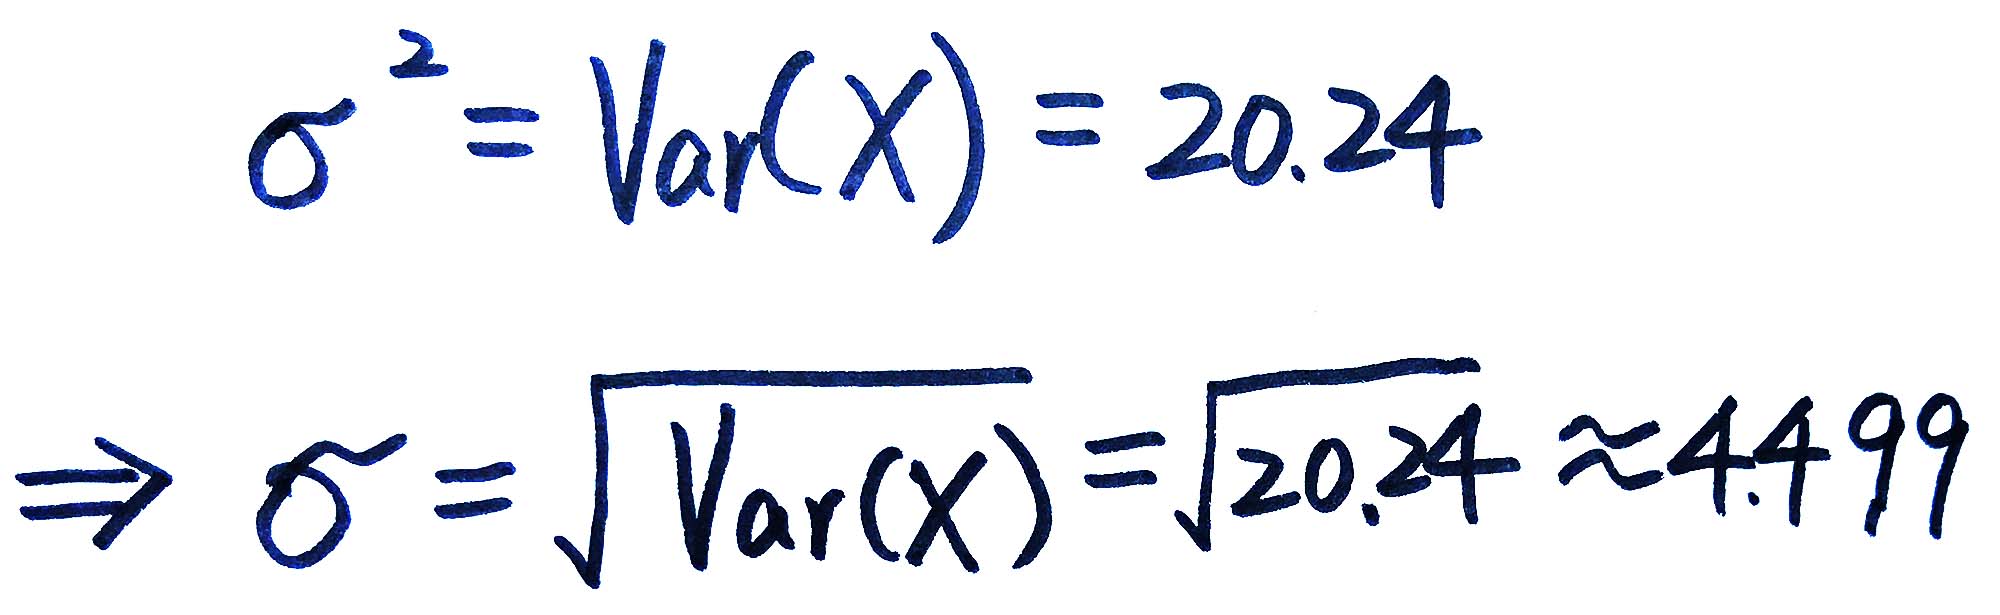 σ² = Var(X) = 20.24
⇒ σ = √Var(X) = √20.24 ≈ 4.499